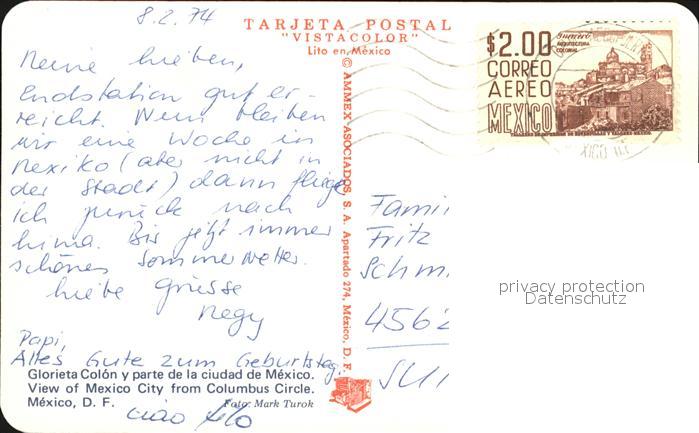 8.2.74
TARJETA POSTAL
"VISTACOLOR"
Lito en México
Meine Lieben,
Endstation gut er-
reicht. Nun bleiben
wir eine Woche in
Mexiko (aber nicht in
der Stadt) dann fliege
ich zurück nach
Lima. Bis jetzt immer
schönes Sommerwetter.
Liebe Grüsse
Megy
Papi,
Alles Gute zum Geburtstag.
Glorieta Colón y parte de la ciudad de México.
View of Mexico City from Columbus Circle.
México, D. F. Foto: Mark Turok
ciao
© AMMEX ASOCIADOS, S. A. Apartado 274, México, D. F.
$2.00
CORREO
AEREO
MEXICO
guerrero
ARQUITECTURA
COLONIAL
Famil
Fritz
Schm
4562
privacy protection
Datenschutz